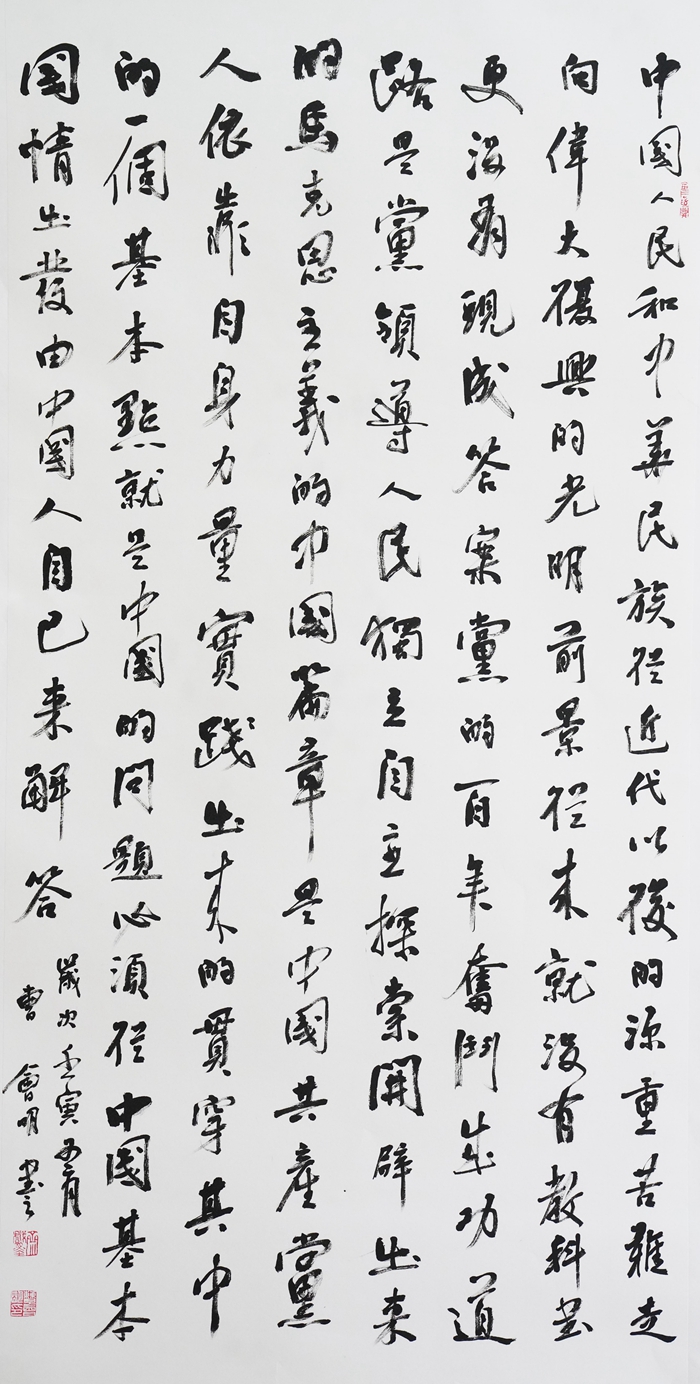 中國人民和中華民族從近代以後的深重苦難走
向偉大復興的光明前景從來就沒有教科書
更沒有現成答案黨的百年奮鬥成功道
路是黨領導人民獨立自主探索開辟出來
的馬克思主義的中國篇章是中國共產黨
人依靠自身力量實踐出來的貫穿其中
的一個基本點就是中國的問題必須從中國基本
国情出發由中國人自己来解答
歲次壬寅五月
曹會明書